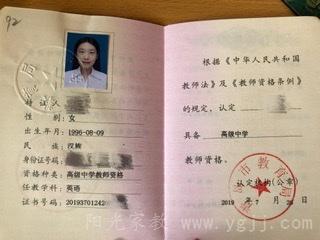 92
持证人
性别：女
出生年月：1996-08-09
民族：汉族
身份证号码：
资格种类：高级中学教师资格
任教学科：英语
证书号码：20193701242
根据《中华人民共和国
教师法》及《教师资格条例》
的规定，认定
具备 高级中学
教师资格。
市教育局
认定机构（公章）
2019 年 7 月 日
阳光家教 www.ygjj.com